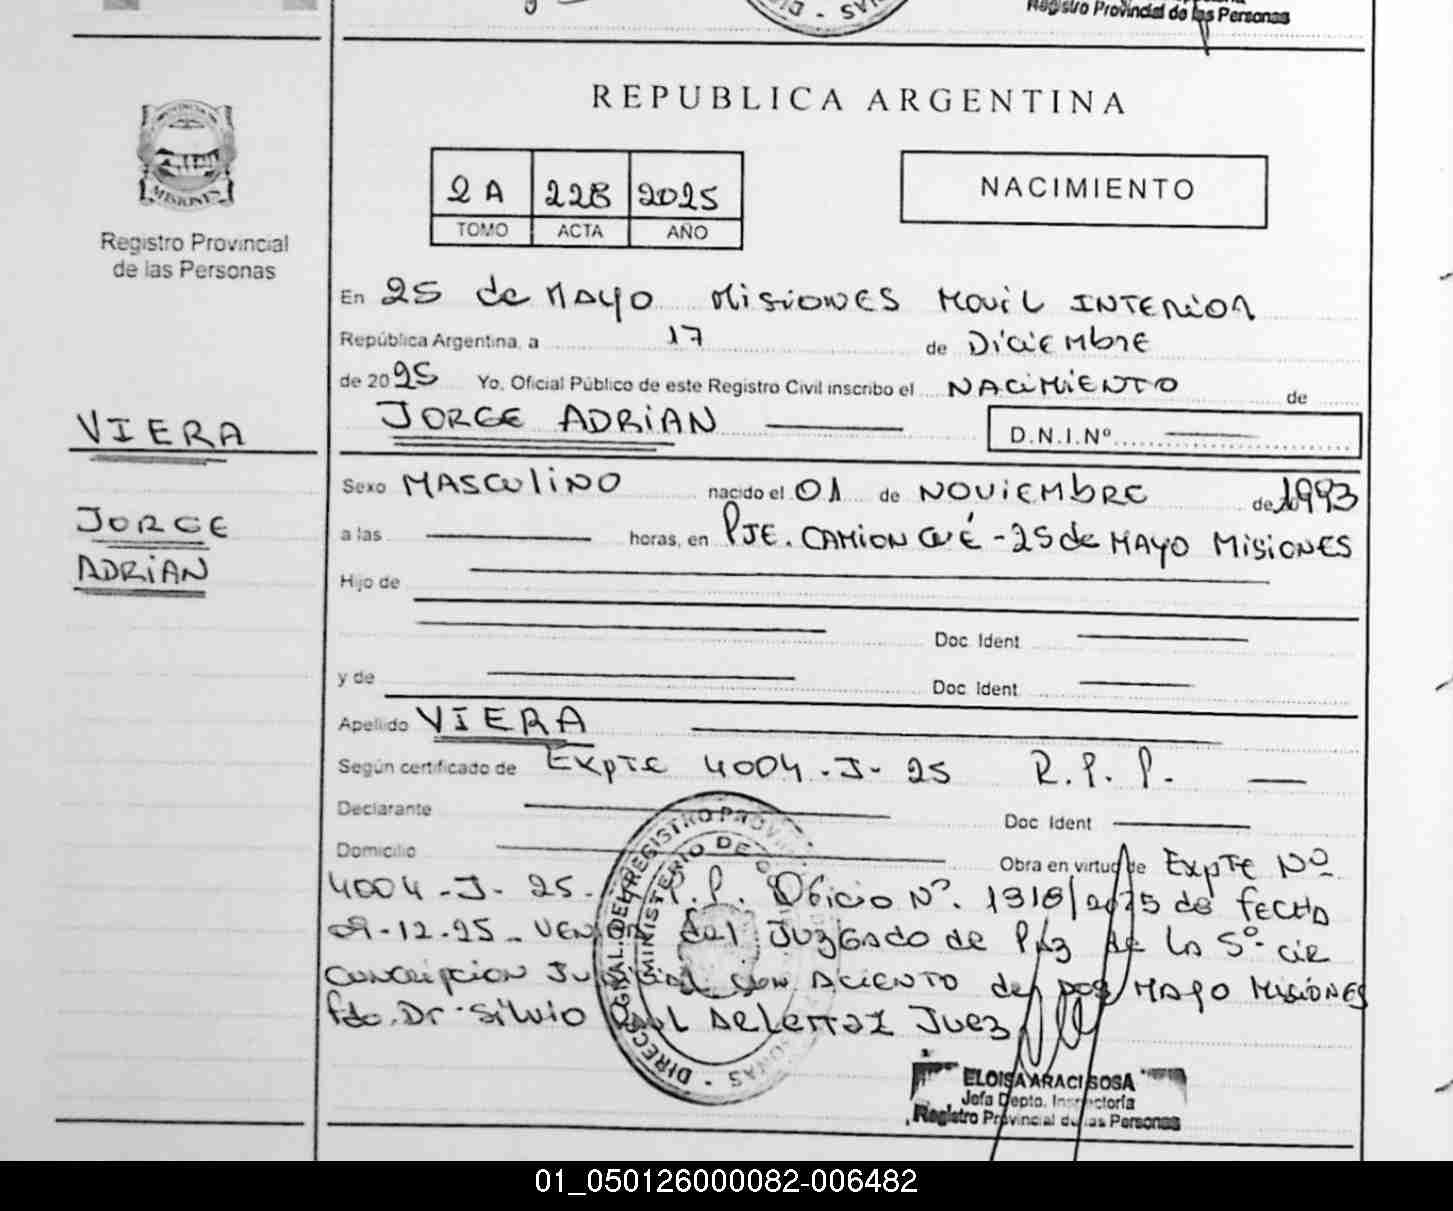 Registro Provincial de las Personas
REPUBLICA ARGENTINA
2A 228 2025
TOMO ACTA AÑO
NACIMIENTO
MISIONES
Registro Provincial
de las Personas
VIERA
JORGE
ADRIAN
En 25 de MAYO MISIONES MOVIL INTERIOR
República Argentina, a 17 de DICIEMBRE
de 2025 Yo, Oficial Público de este Registro Civil inscribo el NACIMIENTO de
JORGE ADRIAN D.N.I.Nº
Sexo MASCULINO nacido el 01 de NOVIEMBRE de 1993
a las horas, en PJE. CAMION CUÉ - 25 de MAYO MISIONES
Hijo de
Doc. Ident
y de Doc. Ident
Apellido VIERA
Según certificado de EXPTE 4004-J-25 R.P.P.
Declarante Doc Ident
Domicilio Obra en virtud de EXPTE Nº
4004-J-25. P.P. Oficio Nº. 1318/2025 de FECHA
09-12-25 del JUZGADO de PAZ de LA 5º CIR
CONCRIPCION JUDICIAL CON ACIENTO de MAYO MISIONES
fdo. Dr. Silvio RAUL JUEZ
ELOISA ARACI SOSA
Jefa Depto. Inspectoría
Registro Provincial de las Personas
01_050126000082-006482